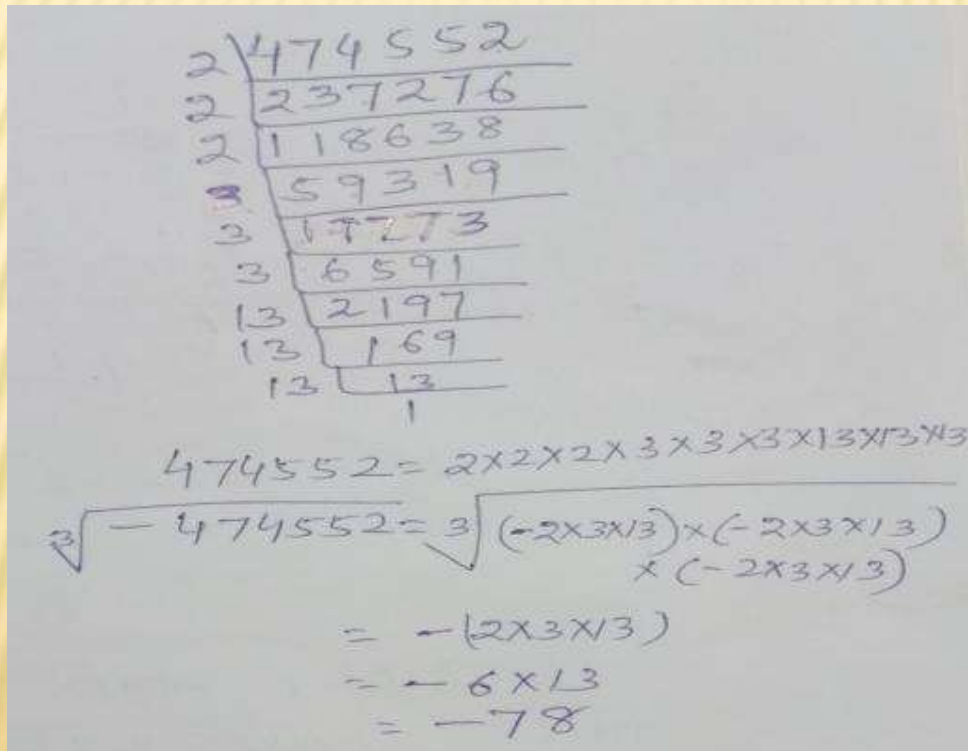 2 474552
2 237276
2 118638
3 59319
3 17773
3 6591
13 2197
13 169
13 13
1
474552 = 2×2×2×3×3×3×13×13×13
∛-474552 = ∛(-2×3×13)×(-2×3×13)
×(-2×3×13)
= -(2×3×13)
= - 6×13
= -78